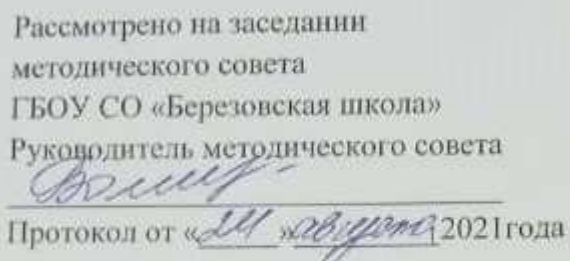 Рассмотрено на заседании
методического совета
ГБОУ СО «Березовская школа»
Руководитель методического совета
Протокол от «24» августа 2021года